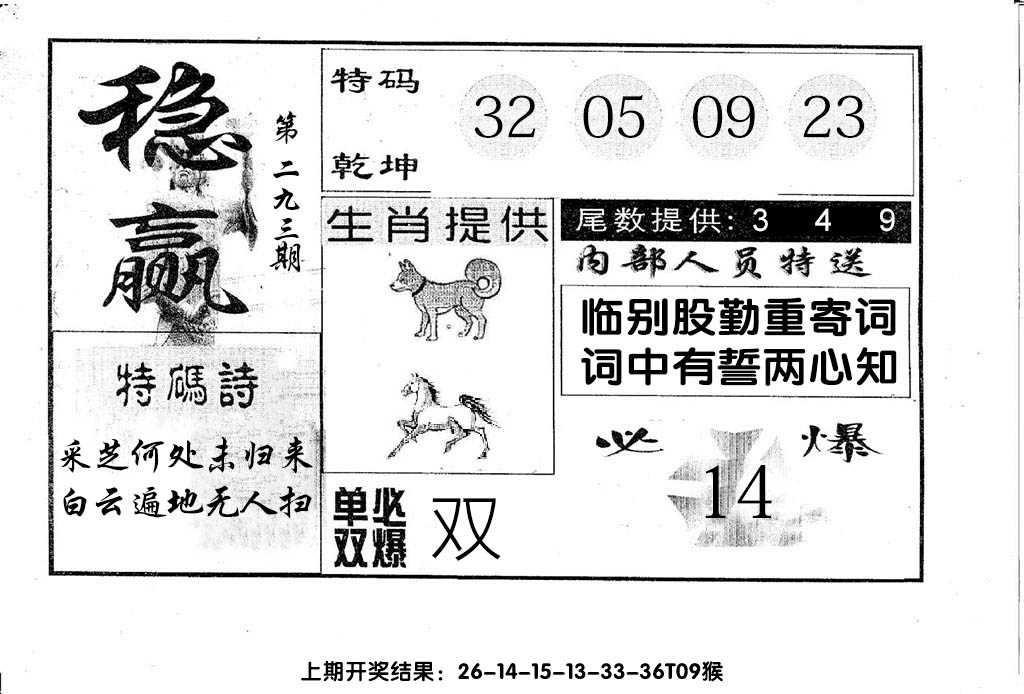 稳赢
第二九三期
特码
乾坤
32 05 09 23
生肖提供
尾数提供: 3 4 9
内部人员特送
临别殷勤重寄词
词中有誓两心知
特碼詩
采芝何处未归来
白云遍地无人扫
单双必爆
双
必爆
14
上期开奖结果：26-14-15-13-33-36T09猴